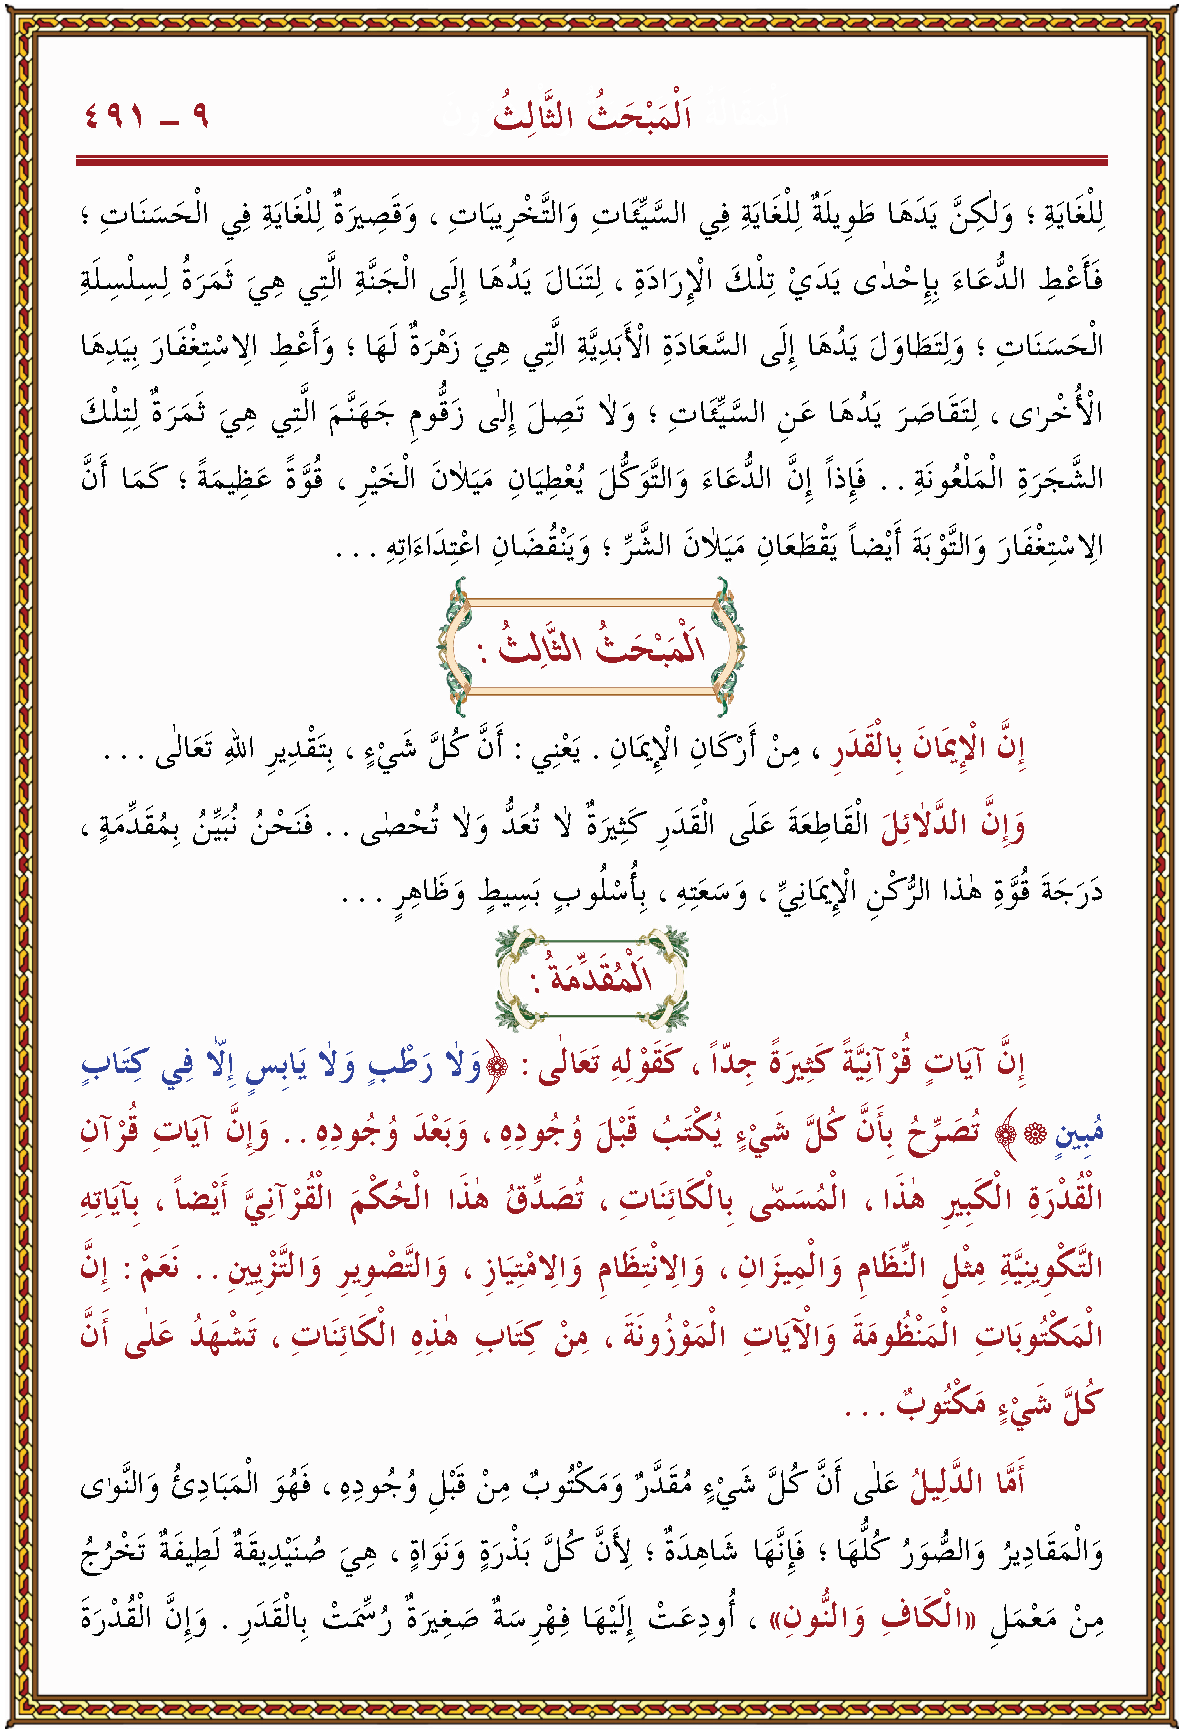 اَلْمَبْحَثُ الثَّالِثُ ٩ – ٤٩١
لِلْغَايَةِ ؛ وَلٰكِنَّ يَدَهَا طَوِيلَةٌ لِلْغَايَةِ فِي السَّيِّئَاتِ وَالتَّخْرِيبَاتِ ، وَقَصِيرَةٌ لِلْغَايَةِ فِي الْحَسَنَاتِ ؛
فَأَعْطِ الدُّعَاءَ بِإِحْدٰى يَدَيْ تِلْكَ الْإِرَادَةِ ، لِتَنَالَ يَدُهَا إِلَى الْجَنَّةِ الَّتِي هِيَ ثَمَرَةُ لِسِلْسِلَةِ
الْحَسَنَاتِ ؛ وَلِتَطَاوَلَ يَدُهَا إِلَى السَّعَادَةِ الْأَبَدِيَّةِ الَّتِي هِيَ زَهْرَةٌ لَهَا ؛ وَأَعْطِ الِاسْتِغْفَارَ بِيَدِهَا
الْأُخْرٰى ، لِتَقَاصَرَ يَدُهَا عَنِ السَّيِّئَاتِ ؛ وَلَا تَصِلَ إِلٰى زَقُّومِ جَهَنَّمَ الَّتِي هِيَ ثَمَرَةٌ لِتِلْكَ
الشَّجَرَةِ الْمَلْعُونَةِ . . فَإِذاً إِنَّ الدُّعَاءَ وَالتَّوَكُّلَ يُعْطِيَانِ مَيَلَانَ الْخَيْرِ ، قُوَّةً عَظِيمَةً ؛ كَمَا أَنَّ
الِاسْتِغْفَارَ وَالتَّوْبَةَ أَيْضاً يَقْطَعَانِ مَيَلَانَ الشَّرِّ ؛ وَيَنْقُضَانِ اعْتِدَاءَاتِهِ . . .
اَلْمَبْحَثُ الثَّالِثُ :
إِنَّ الْإِيمَانَ بِالْقَدَرِ ، مِنْ أَرْكَانِ الْإِيمَانِ . يَعْنِي : أَنَّ كُلَّ شَيْءٍ ، بِتَقْدِيرِ اللهِ تَعَالٰى . . .
وَإِنَّ الدَّلَائِلَ الْقَاطِعَةَ عَلَى الْقَدَرِ كَثِيرَةٌ لَا تُعَدُّ وَلَا تُحْصٰى . . فَنَحْنُ نُبَيِّنُ بِمُقَدِّمَةٍ ،
دَرَجَةَ قُوَّةِ هٰذَا الرُّكْنِ الْإِيمَانِيِّ ، وَسَعَتِهِ ، بِأُسْلُوبٍ بَسِيطٍ وَظَاهِرٍ . . .
اَلْمُقَدِّمَةُ :
إِنَّ آيَاتٍ قُرْآنِيَّةً كَثِيرَةً جِدّاً ، كَقَوْلِهِ تَعَالٰى : ﴿وَلَا رَطْبٍ وَلَا يَابِسٍ إِلَّا فِي كِتَابٍ
مُبِينٍ ۞﴾ تُصَرِّحُ بِأَنَّ كُلَّ شَيْءٍ يُكْتَبُ قَبْلَ وُجُودِهِ ، وَبَعْدَ وُجُودِهِ . . وَإِنَّ آيَاتِ قُرْآنِ
الْقُدْرَةِ الْكَبِيرِ هٰذَا ، الْمُسَمّٰى بِالْكَائِنَاتِ ، تُصَدِّقُ هٰذَا الْحُكْمَ الْقُرْآنِيَّ أَيْضاً ، بِآيَاتِهِ
التَّكْوِينِيَّةِ مِثْلِ النِّظَامِ وَالْمِيزَانِ ، وَالِانْتِظَامِ وَالِامْتِيَازِ ، وَالتَّصْوِيرِ وَالتَّزْيِينِ . . نَعَمْ : إِنَّ
الْمَكْتُوبَاتِ الْمَنْظُومَةَ وَالْآيَاتِ الْمَوْزُونَةَ ، مِنْ كِتَابِ هٰذِهِ الْكَائِنَاتِ ، تَشْهَدُ عَلٰى أَنَّ
كُلَّ شَيْءٍ مَكْتُوبٌ . . .
أَمَّا الدَّلِيلُ عَلٰى أَنَّ كُلَّ شَيْءٍ مُقَدَّرٌ وَمَكْتُوبٌ مِنْ قَبْلِ وُجُودِهِ ، فَهُوَ الْمَبَادِئُ وَالنَّوٰى
وَالْمَقَادِيرُ وَالصُّوَرُ كُلُّهَا ؛ فَإِنَّهَا شَاهِدَةٌ ؛ لِأَنَّ كُلَّ بَذْرَةٍ وَنَوَاةٍ ، هِيَ صُنَيْدِيقَةٌ لَطِيفَةٌ تَخْرُجُ
مِنْ مَعْمَلِ «الْكَافِ وَالنُّونِ» ، أُودِعَتْ إِلَيْهَا فِهْرِسَةٌ صَغِيرَةٌ رُسِّمَتْ بِالْقَدَرِ . وَإِنَّ الْقُدْرَةَ